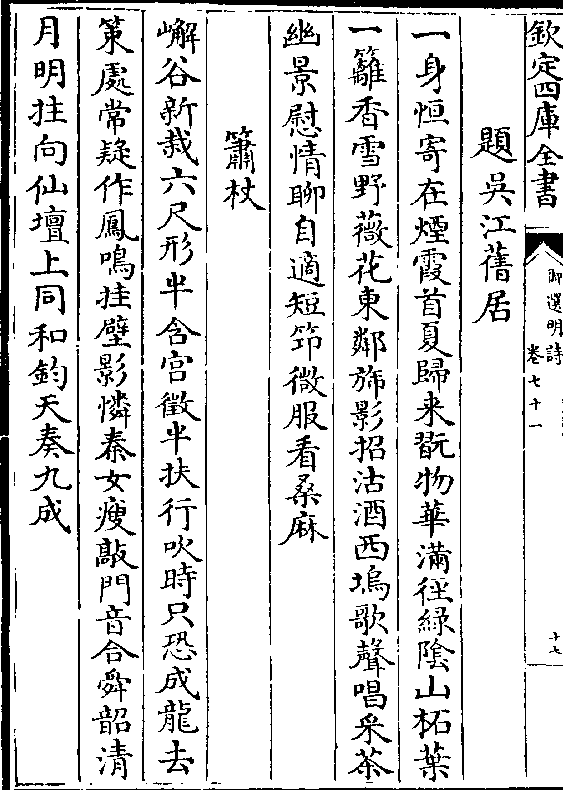 欽定四庫全書
御選明詩
卷七十一
十七
題吳江舊居
一身恒寄在煙霞首夏歸来翫物華滿徑綠陰山柘葉
一籬香雪野薇花東鄰斾影招沽酒西塢歌聲唱采茶
幽景慰情聊自適短笻微服看桑麻
簫杖
嶰谷新裁六尺形半含宮徵半扶行吹時只恐成龍去
䇿處常疑作鳳鳴挂壁影憐秦女瘦敲門音合舜韶清
月明拄向仙壇上同和鈞天奏九成